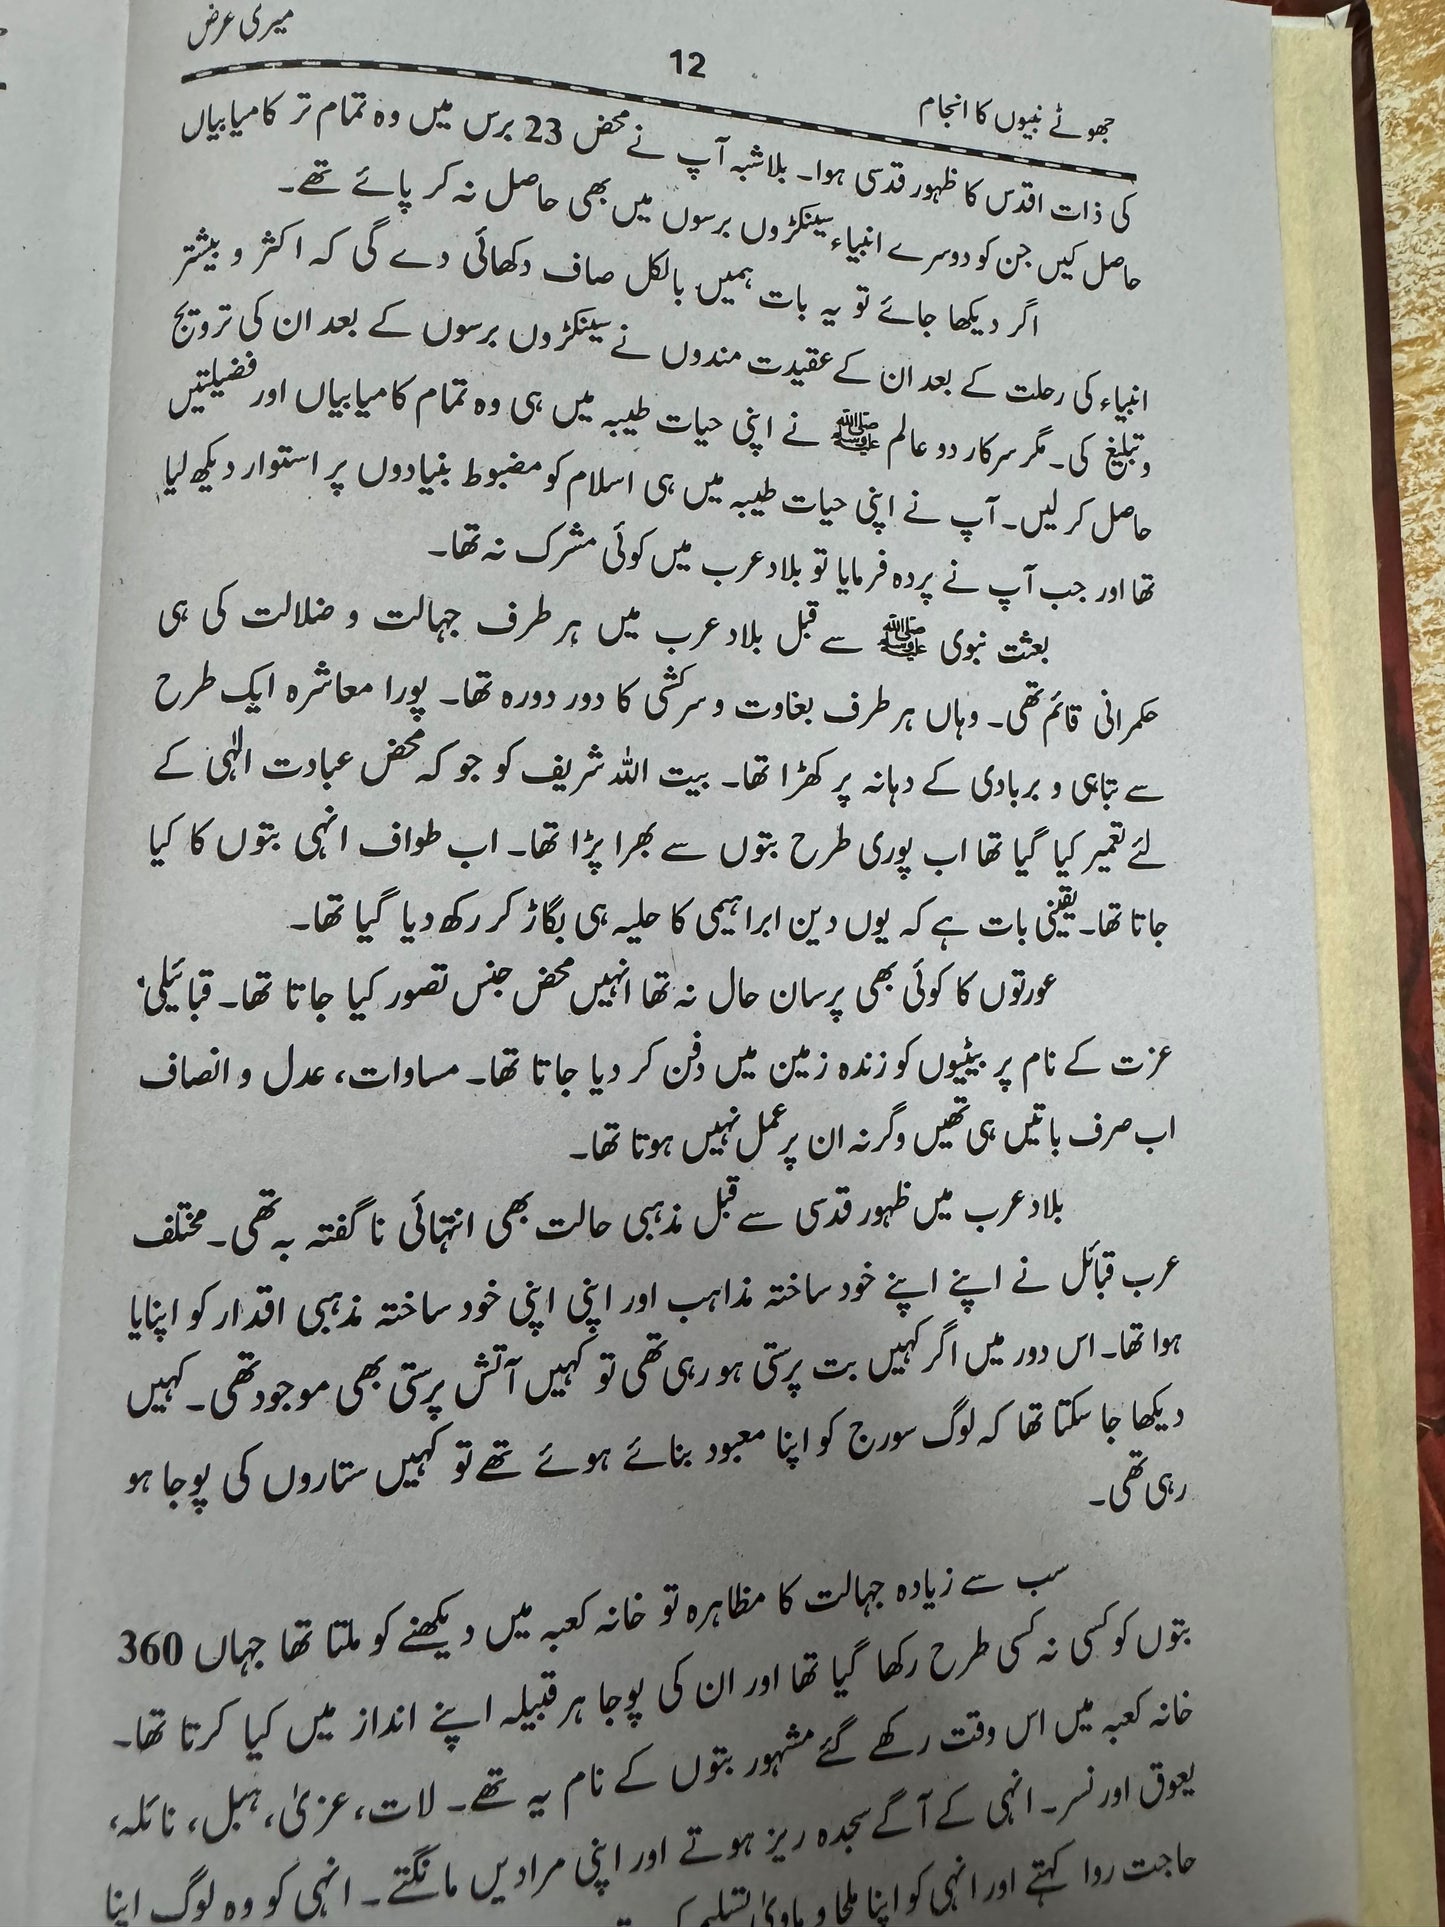 میری عرض
12
جھوٹے نبیوں کا انجام
کی ذات اقدس کا ظہور قدسی ہوا۔ بلاشبہ آپ نے محض 23 برس میں وہ تمام تر کامیابیاں
حاصل کیں جن کو دوسرے انبیاء سینکڑوں برسوں میں بھی حاصل نہ کر پائے تھے۔
اگر دیکھا جائے تو یہ بات ہمیں بالکل صاف دکھائی دے گی کہ اکثر و بیشتر
انبیاء کی رحلت کے بعد ان کے عقیدت مندوں نے سینکڑوں برسوں کے بعد ان کی ترویج
و تبلیغ کی۔ مگر سرکار دو عالم ﷺ نے اپنی حیات طیبہ میں ہی وہ تمام کامیابیاں اور فضیلتیں
حاصل کر لیں۔ آپ نے اپنی حیات طیبہ میں ہی اسلام کو مضبوط بنیادوں پر استوار دیکھ لیا
تھا اور جب آپ نے پردہ فرمایا تو بلاد عرب میں کوئی مشرک نہ تھا۔
بعثت نبوی ﷺ سے قبل بلاد عرب میں ہر طرف جہالت و ضلالت کی ہی
حکمرانی قائم تھی۔ وہاں ہر طرف بغاوت و سرکشی کا دور دورہ تھا۔ پورا معاشرہ ایک طرح
سے تباہی و بربادی کے دہانہ پر کھڑا تھا۔ بیت اللہ شریف کو جو کہ محض عبادت الٰہی کے
لئے تعمیر کیا گیا تھا اب پوری طرح بتوں سے بھرا پڑا تھا۔ اب طواف انہی بتوں کا کیا
جاتا تھا۔ یقینی بات ہے کہ یوں دین ابراہیمی کا حلیہ ہی بگاڑ کر رکھ دیا گیا تھا۔
عورتوں کا کوئی بھی پرسان حال نہ تھا انہیں محض جنس تصور کیا جاتا تھا۔ قبائیلی
عزت کے نام پر بیٹیوں کو زندہ زمین میں دفن کر دیا جاتا تھا۔ مساوات، عدل و انصاف
اب صرف باتیں ہی تھیں وگرنہ ان پر عمل نہیں ہوتا تھا۔
بلاد عرب میں ظہور قدسی سے قبل مذہبی حالت بھی انتہائی ناگفتہ بہ تھی۔ مختلف
عرب قبائل نے اپنے اپنے خود ساختہ مذاہب اور اپنی اپنی خود ساختہ مذہبی اقدار کو اپنایا
ہوا تھا۔ اس دور میں اگر کہیں بت پرستی ہو رہی تھی تو کہیں آتش پرستی بھی موجود تھی۔ کہیں
دیکھا جا سکتا تھا کہ لوگ سورج کو اپنا معبود بنائے ہوئے تھے تو کہیں ستاروں کی پوجا ہو
رہی تھی۔
سب سے زیادہ جہالت کا مظاہرہ تو خانہ کعبہ میں دیکھنے کو ملتا تھا جہاں 360
بتوں کو کسی نہ کسی طرح رکھا گیا تھا اور ان کی پوجا ہر قبیلہ اپنے انداز میں کیا کرتا تھا۔
خانہ کعبہ میں اس وقت رکھے گئے مشہور بتوں کے نام یہ تھے۔ لات، عزیٰ، ہبل، نائلہ،
یعوق اور نسر۔ انہی کے آگے سجدہ ریز ہوتے اور اپنی مرادیں مانگتے۔ انہی کو وہ لوگ اپنا
حاجت روا کہتے اور انہی کو اپنا ملجا و ماویٰ تسلیم